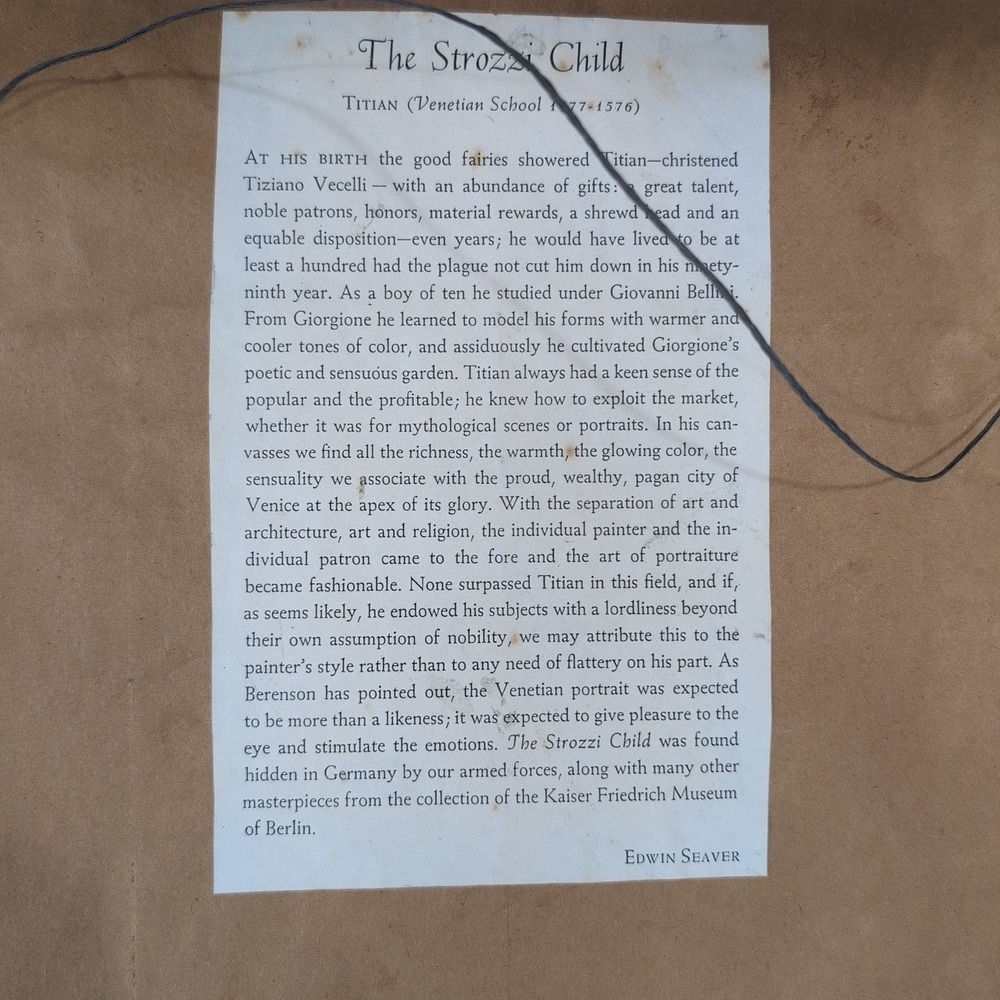 The Strozzi Child
TITIAN (Venetian School 1477-1576)
AT HIS BIRTH the good fairies showered Titian—christened
Tiziano Vecelli — with an abundance of gifts: a great talent,
noble patrons, honors, material rewards, a shrewd head and an
equable disposition—even years; he would have lived to be at
least a hundred had the plague not cut him down in his ninety-
ninth year. As a boy of ten he studied under Giovanni Bellini.
From Giorgione he learned to model his forms with warmer and
cooler tones of color, and assiduously he cultivated Giorgione's
poetic and sensuous garden. Titian always had a keen sense of the
popular and the profitable; he knew how to exploit the market,
whether it was for mythological scenes or portraits. In his can-
vasses we find all the richness, the warmth, the glowing color, the
sensuality we associate with the proud, wealthy, pagan city of
Venice at the apex of its glory. With the separation of art and
architecture, art and religion, the individual painter and the in-
dividual patron came to the fore and the art of portraiture
became fashionable. None surpassed Titian in this field, and if,
as seems likely, he endowed his subjects with a lordliness beyond
their own assumption of nobility, we may attribute this to the
painter's style rather than to any need of flattery on his part. As
Berenson has pointed out, the Venetian portrait was expected
to be more than a likeness; it was expected to give pleasure to the
eye and stimulate the emotions. The Strozzi Child was found
hidden in Germany by our armed forces, along with many other
masterpieces from the collection of the Kaiser Friedrich Museum
of Berlin.
EDWIN SEAVER